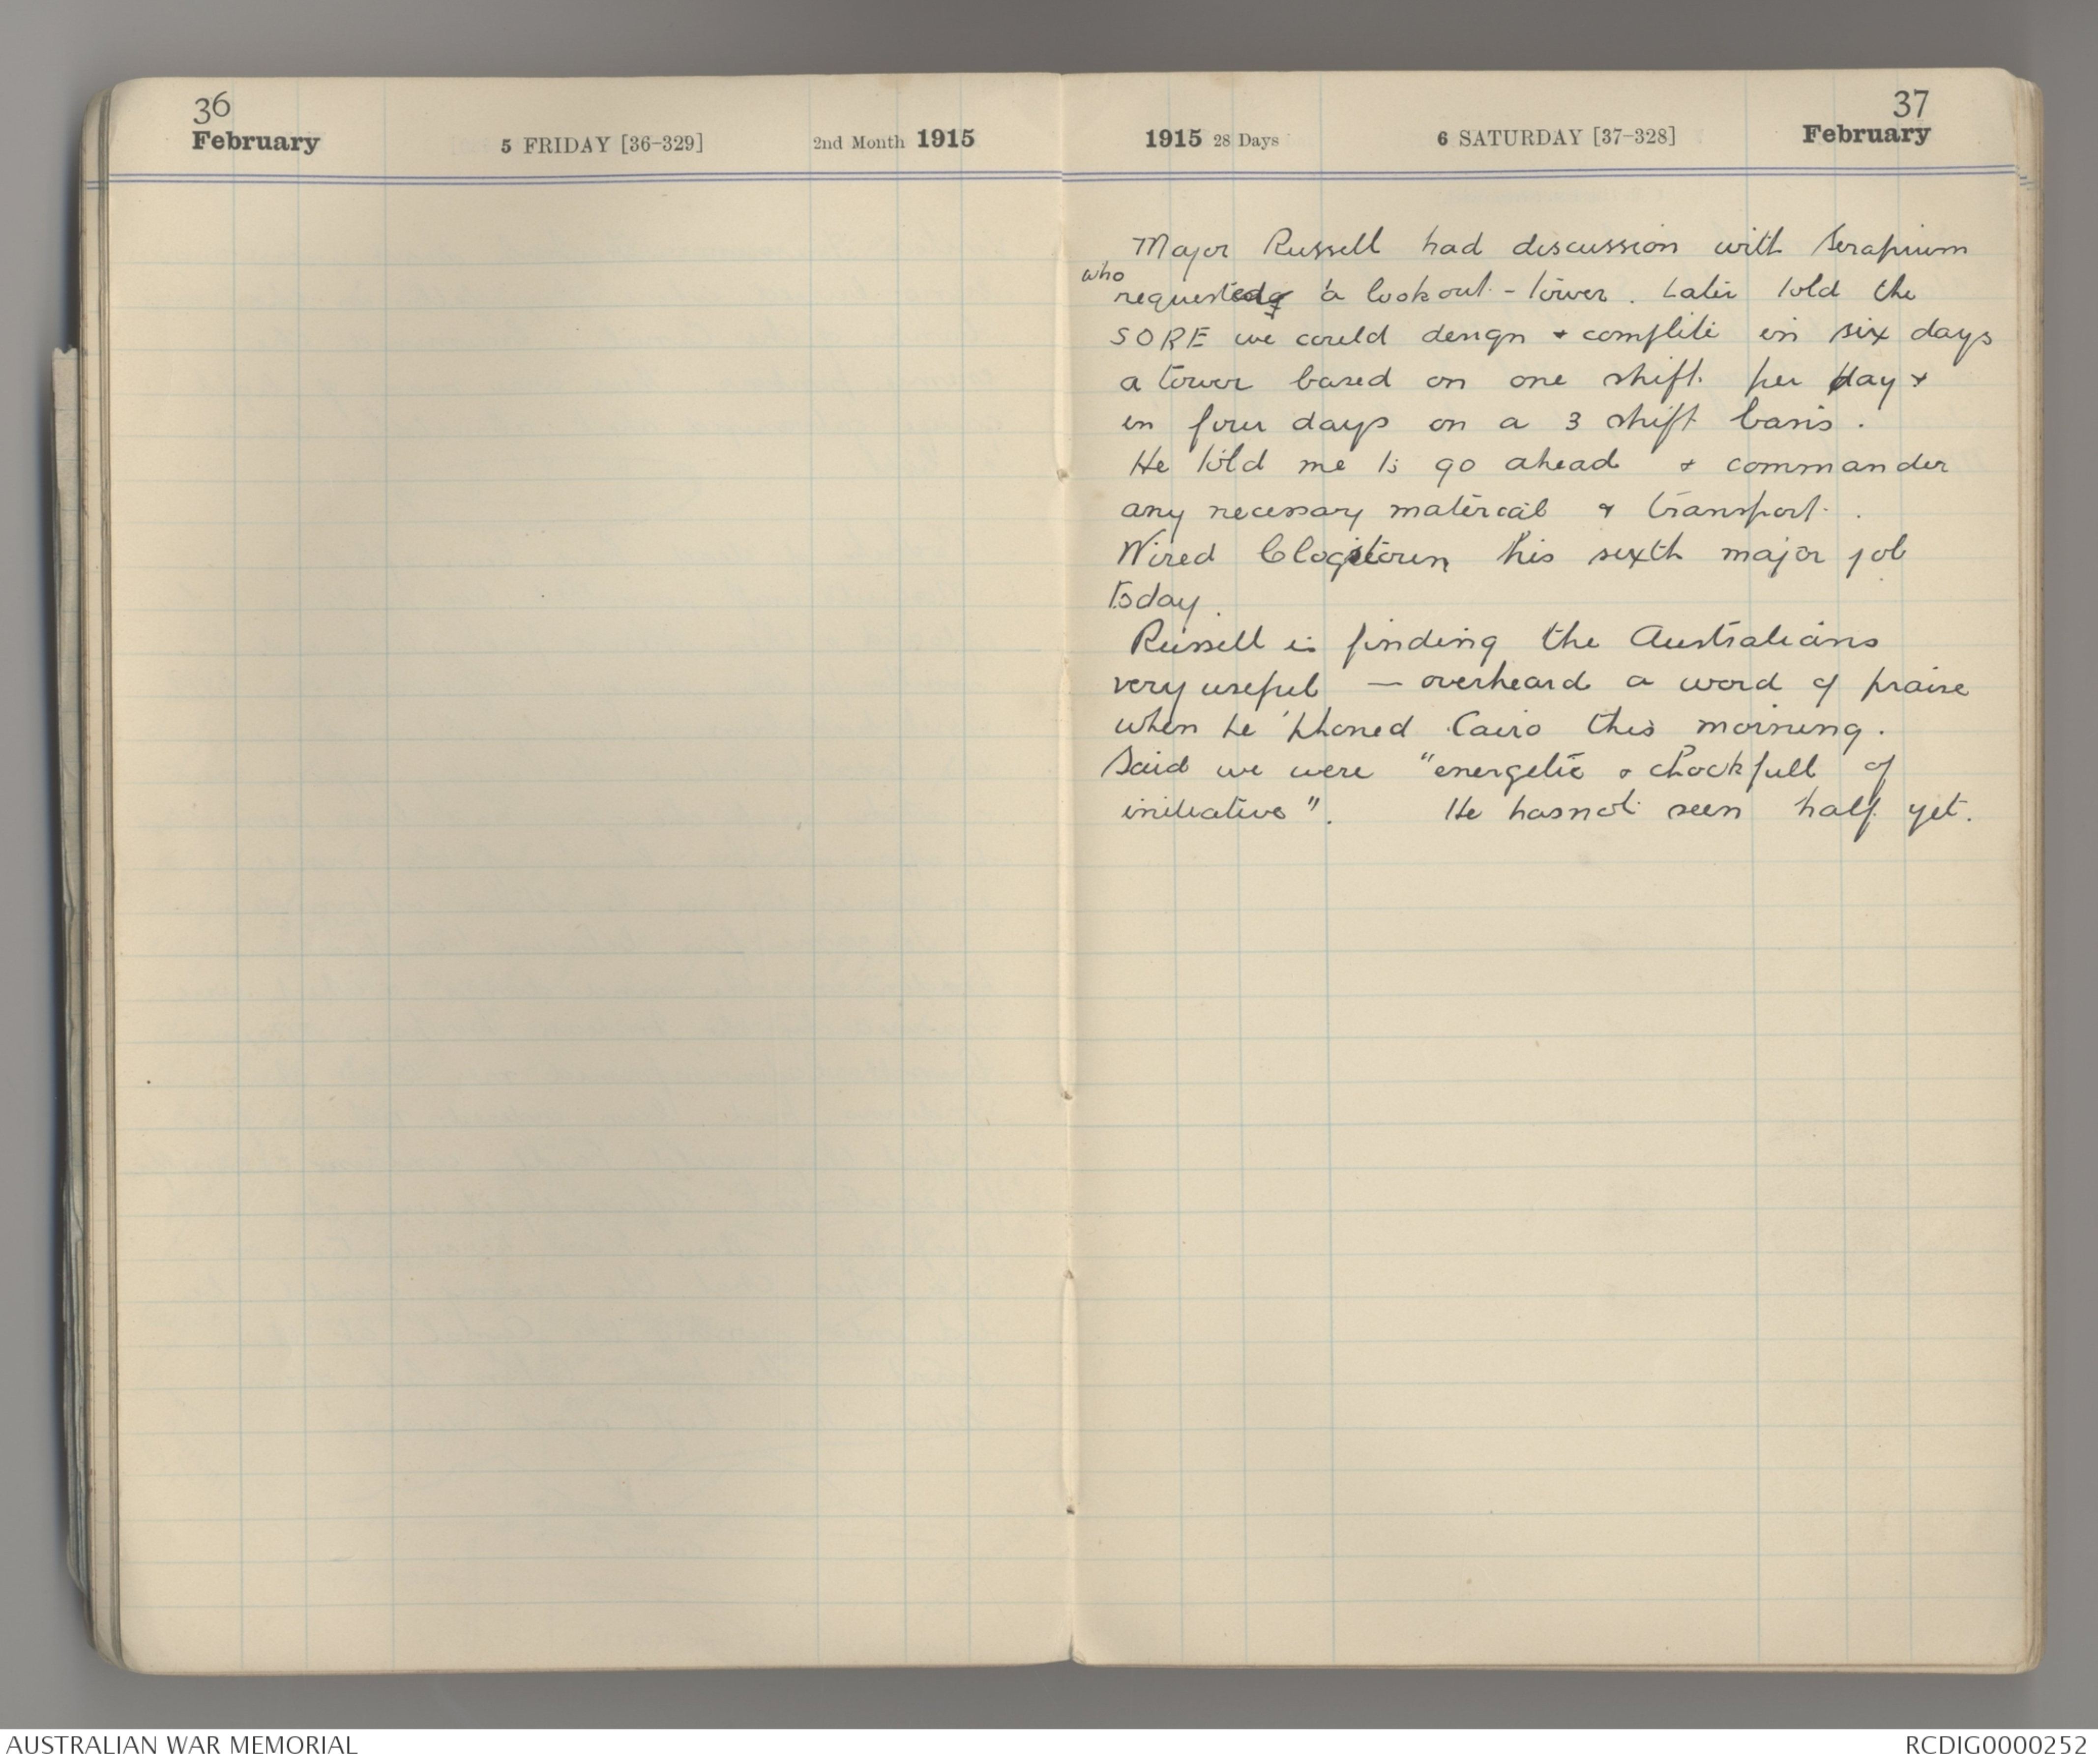 36
February
5 FRIDAY [36-329]
2nd Month 1915
1915 28 Days
6 SATURDAY [37-328]
37
February
Major Russell had discussion with Serapium
who
requested a lookout-tower. Later told the
SORE we could design & complete in six days
a tower based on one shift per day &
in four days on a 3 shift basis.
He told me to go ahead & commander
any necessary material & transport.
Wired Clogstoun his sixth major job
today.
Russell is finding the Australians
very useful — overheard a word of praise
when he 'phoned Cairo this morning.
Said we were "energetic & chockfull of
initiative". He has not seen half yet.
AUSTRALIAN WAR MEMORIAL
RCDIG0000252